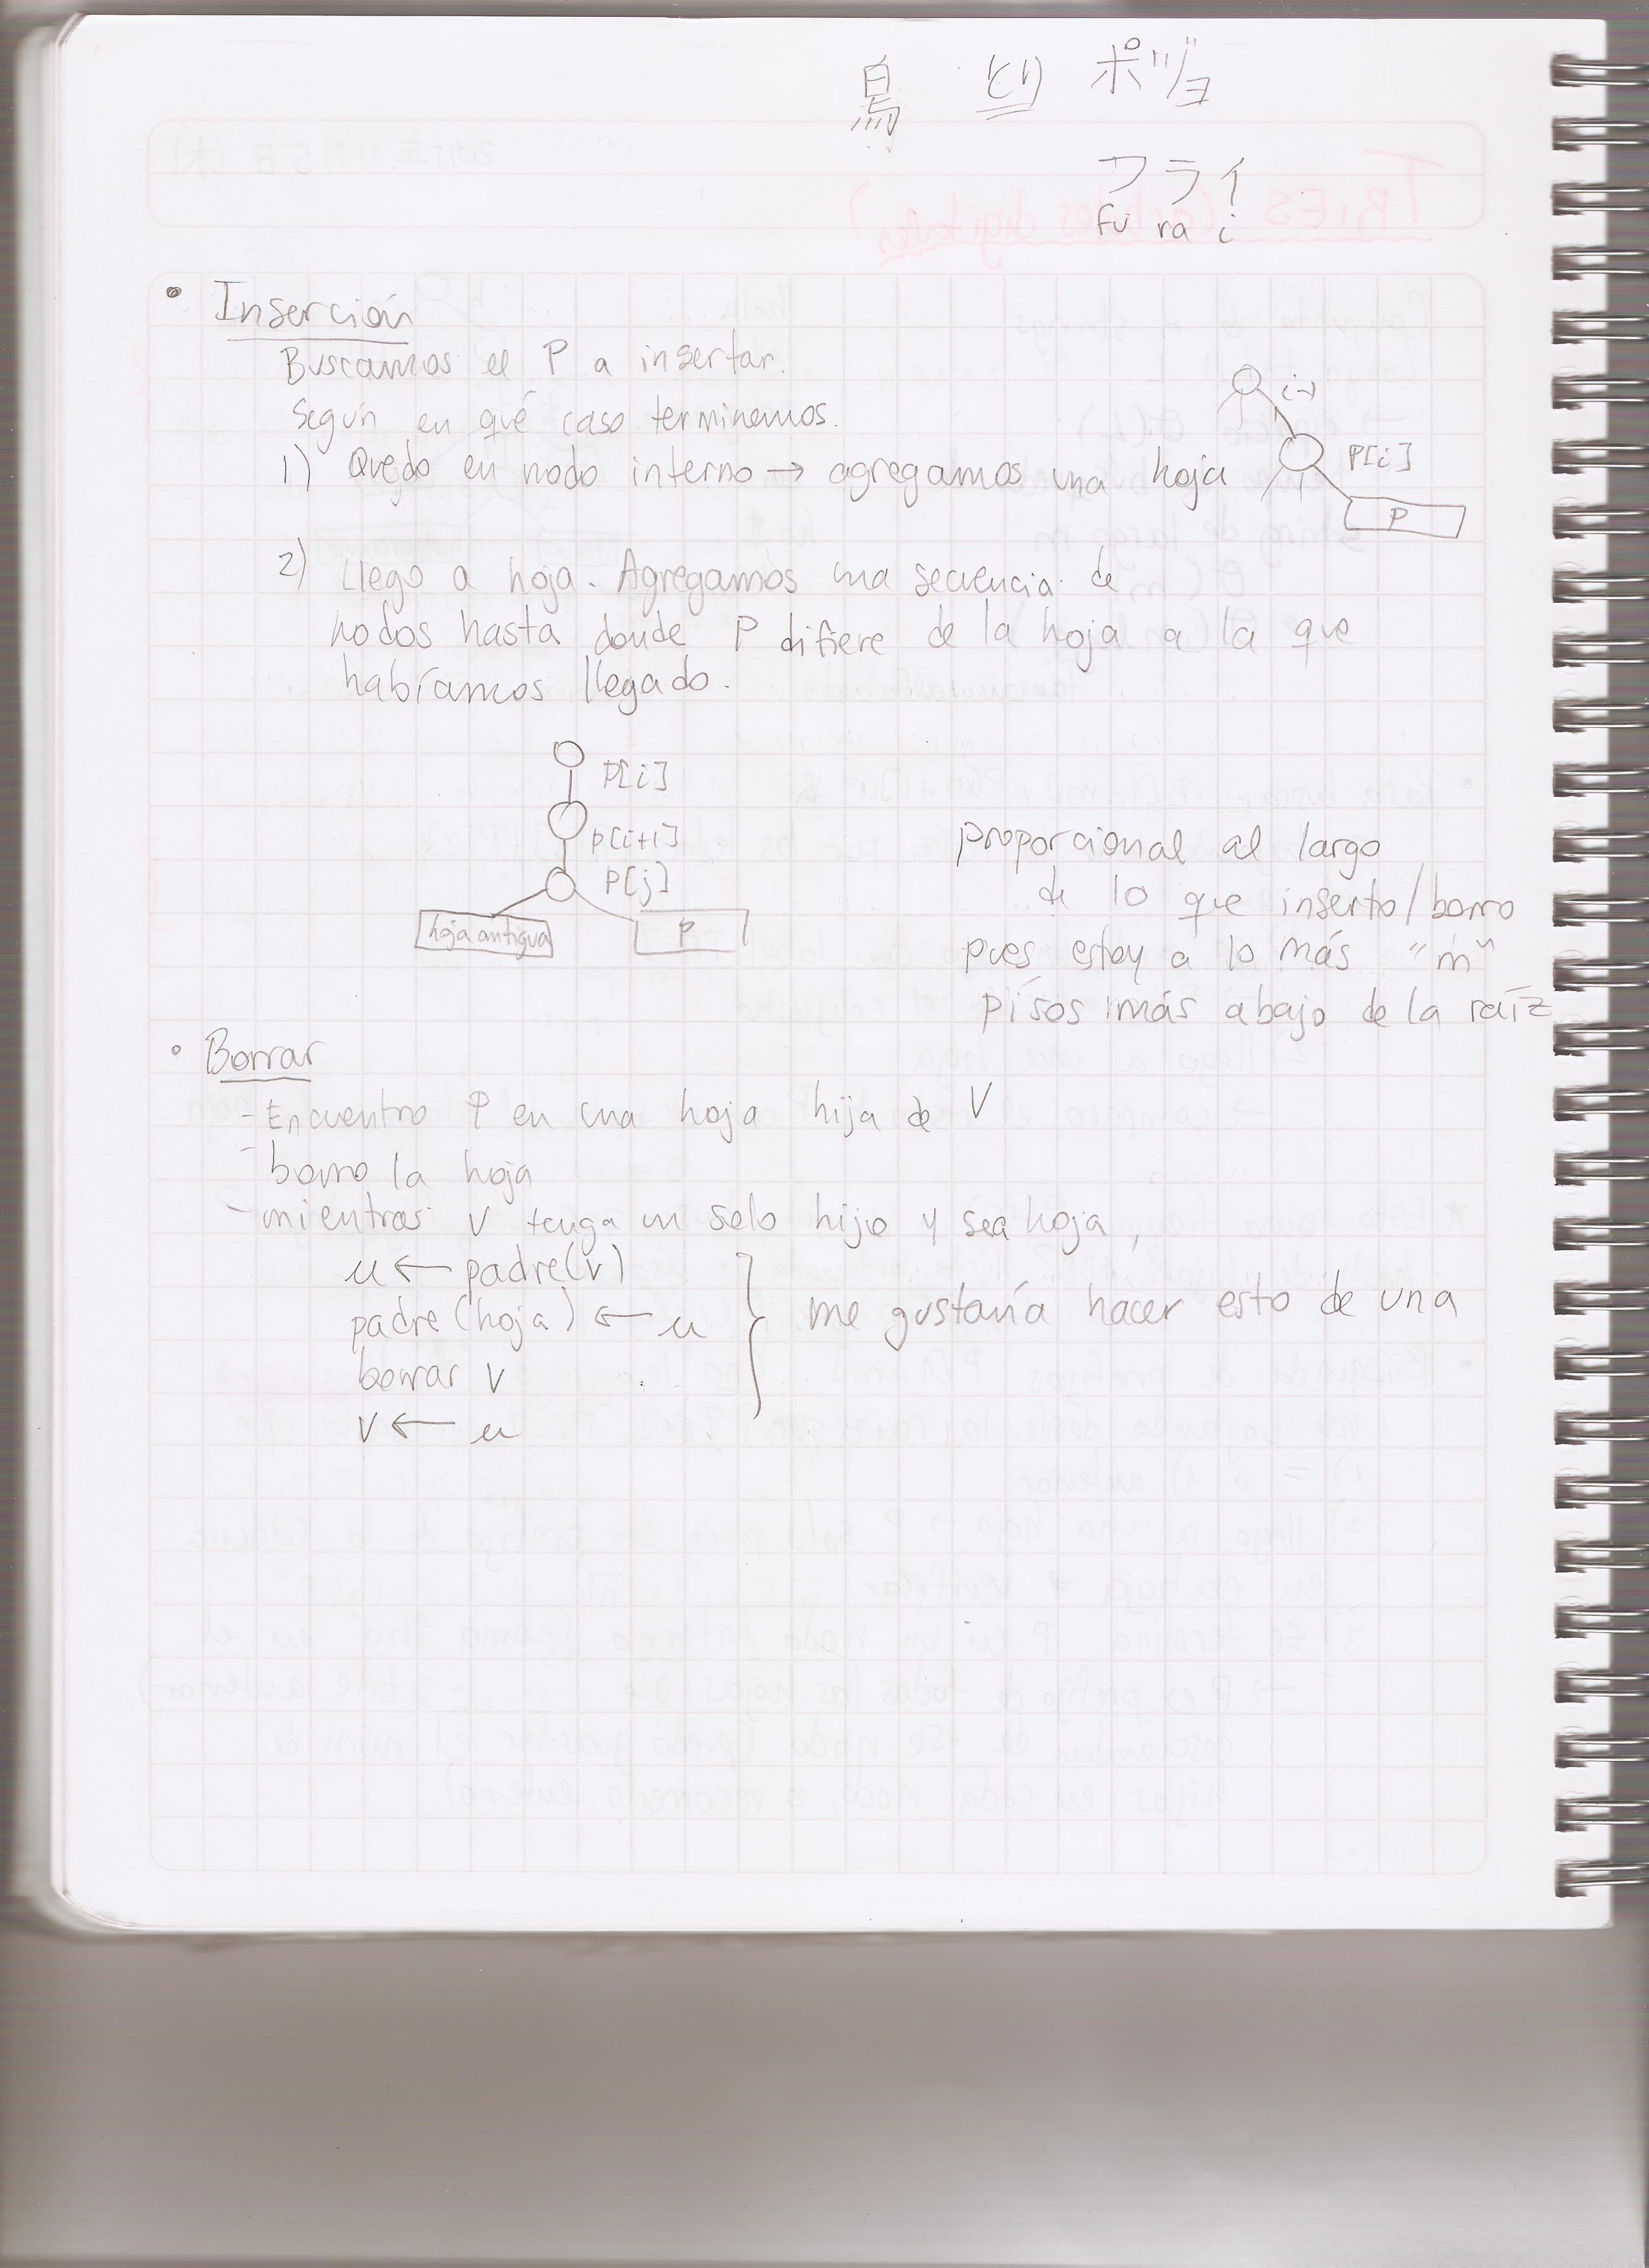 鳥 とり ポジョ
フライ
fu ra i
• Inserción
Buscamos el P a insertar.
Según en qué caso terminemos.
1) Quedo en nodo interno → agregamos una hoja
P[i]
P
2) Llego a hoja. Agregamos una secuencia de
nodos hasta donde P difiere de la hoja a la que
habíamos llegado.
P[i]
P[i+1]
P[j]
hoja antigua
P
proporcional al largo
de lo que inserto/borro
pues estoy a lo más "m"
pisos más abajo de la raíz
• Borrar
- Encuentro P en una hoja hija de V
- borro la hoja
- mientras v tenga un solo hijo y sea hoja,
u ← padre(v)
padre(hoja) ← u
borrar v
v ← u
me gustaría hacer esto de una